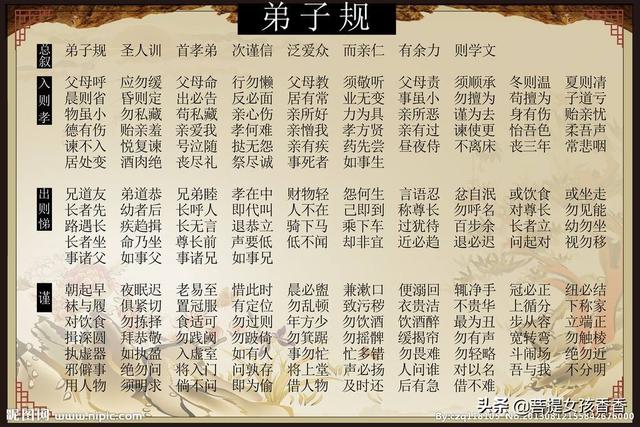 弟子规
总叙
弟子规 圣人训 首孝弟 次谨信 泛爱众 而亲仁 有余力 则学文
入则孝
父母呼 应勿缓 父母命 行勿懒 父母教 须敬听 父母责 须顺承 冬则温 夏则清
晨则省 昏则定 出必告 反必面 居有常 业无变 事虽小 勿擅为 苟擅为 子道亏
物虽小 勿私藏 苟私藏 亲心伤 亲所好 力为具 亲所恶 谨为去 身有伤 贻亲忧
德有伤 贻亲羞 亲爱我 孝何难 亲憎我 孝方贤 亲有过 谏使更 怡吾色 柔吾声
谏不入 悦复谏 号泣随 挞无怨 亲有疾 药先尝 昼夜侍 不离床 丧三年 常悲咽
居处变 酒肉绝 丧尽礼 祭尽诚 事死者 如事生
出则悌
兄道友 弟道恭 兄弟睦 孝在中 财物轻 怨何生 言语忍 忿自泯 或饮食 或坐走
长者先 幼者后 长呼人 即代叫 人不在 己即到 称尊长 勿呼名 对尊长 勿见能
路遇长 疾趋揖 长无言 退恭立 骑下马 乘下车 过犹待 百步余 长者立 幼勿坐
长者坐 命乃坐 尊长前 声要低 低不闻 却非宜 近必趋 退必迟 问起对 视勿移
事诸父 如事父 事诸兄 如事兄
谨
朝起早 夜眠迟 老易至 惜此时 晨必盥 兼漱口 便溺回 辄净手 冠必正 纽必结
袜与履 俱紧切 置冠服 有定位 勿乱顿 致污秽 衣贵洁 不贵华 上循分 下称家
对饮食 勿拣择 食适可 勿过则 年方少 勿饮酒 饮酒醉 最为丑 步从容 立端正
揖深圆 拜恭敬 勿践阈 勿跛倚 勿箕踞 勿摇髀 缓揭帘 勿有声 宽转弯 勿触棱
执虚器 如执盈 入虚室 如有人 事勿忙 忙多错 勿畏难 勿轻略 斗闹场 绝勿近
邪僻事 绝勿问 将入门 问孰存 将上堂 声必扬 人问谁 对以名 吾与我 不分明
用人物 须明求 倘不问 即为偷 借人物 及时还 后有急 借不难
昵图网 www.nipic.com
头条 @菩提女孩香香